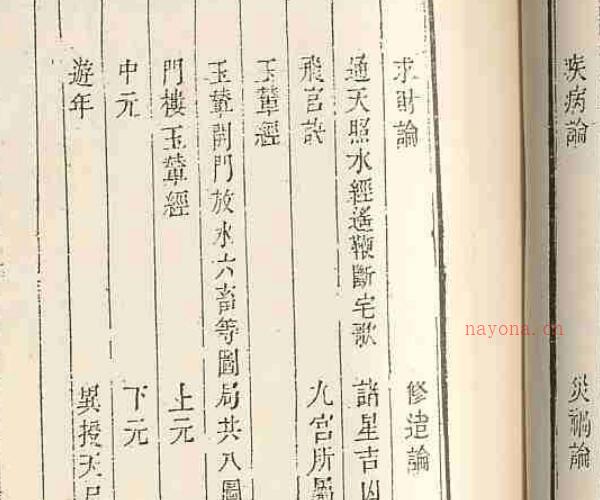 疾病論 災禍論
求財論 修造論
通天照水經遙鞭斷宅歌 諸星吉凶
飛宮訣 九宮所屬
玉輦經
玉輦開門放水六畜等圖局共八圖
門樓玉輦經 上元
中元 下元
遊年 異授天
nayona.cn